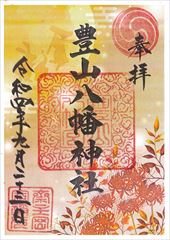 奉拝
豊山八幡神社
令和四年九月二十三日